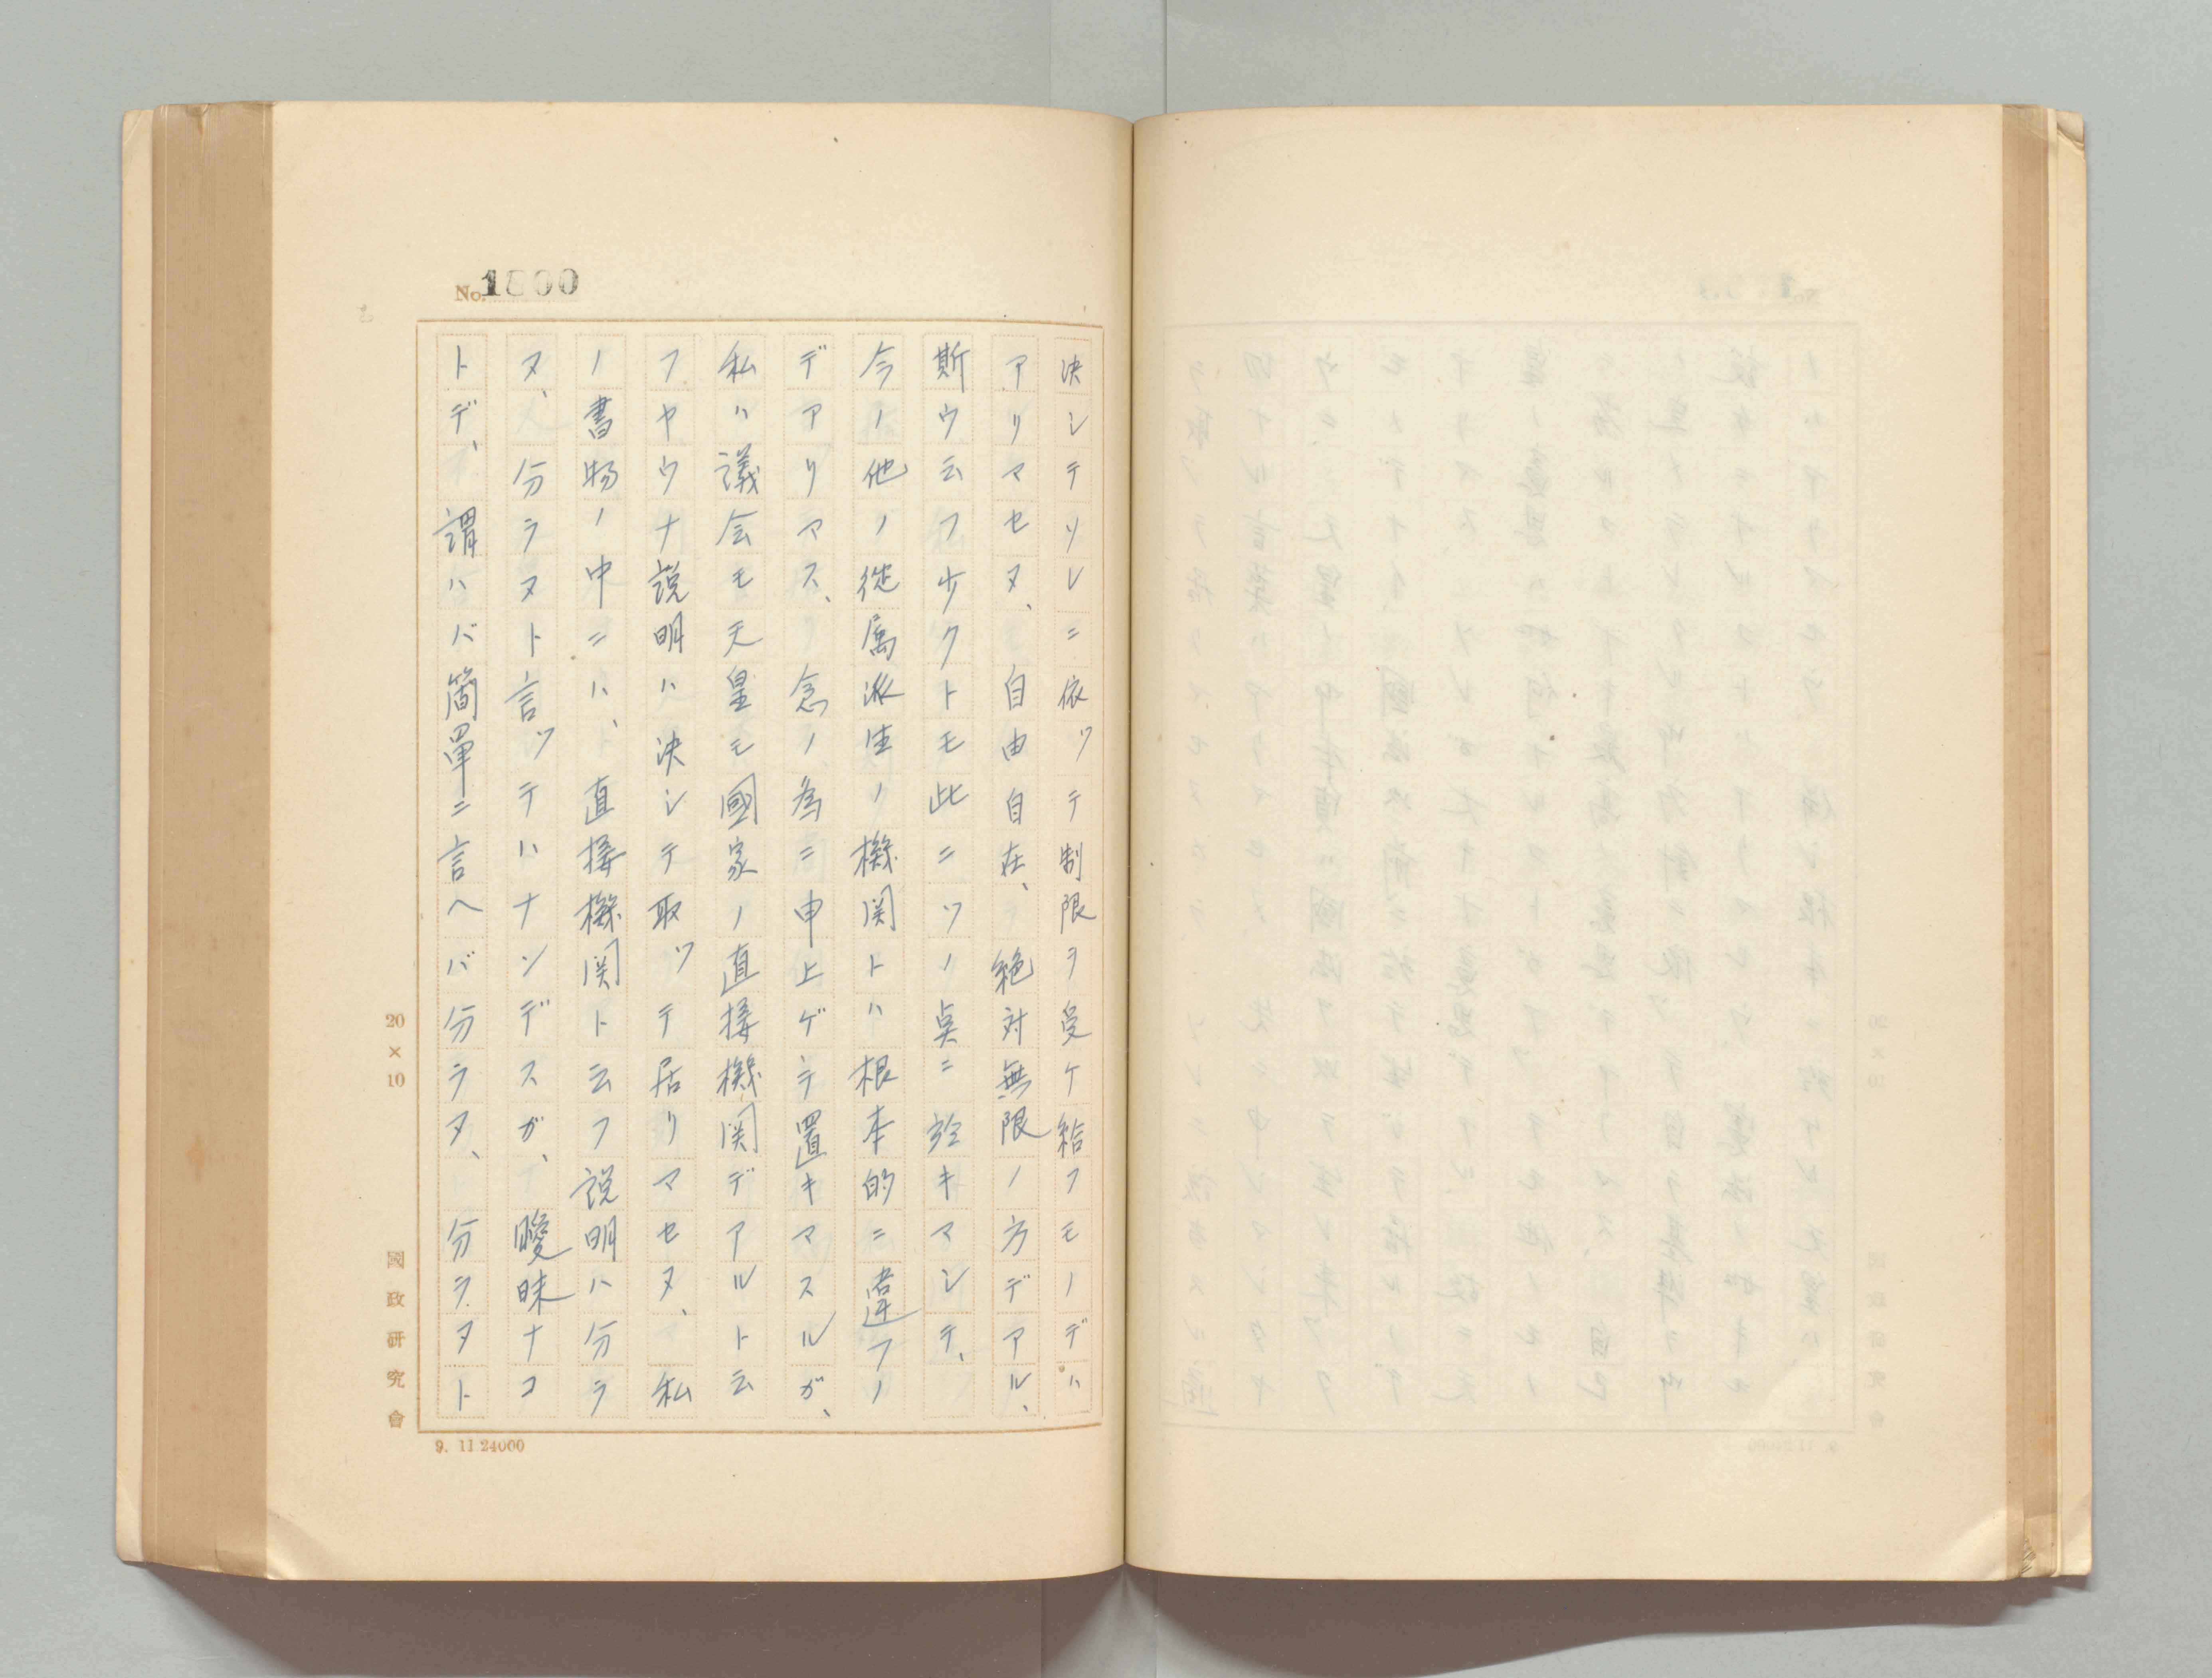 No. 1800
決シテソレニ依ツテ制限ヲ受ケ給フモノデハ
アリマセヌ、自由自在、絶対無限ノ方デアル、
斯ウ云フ少クトモ此ニツノ点ニ於キマシテ、
今ノ他ノ従属派生ノ機関トハ根本的ニ違フノ
デアリマス、念ノ為ニ申上ゲテ置キマスルガ、
私ハ議会モ天皇モ國家ノ直接機関デアルト云
フヤウナ説明ハ決シテ取ツテ居リマセヌ、私
ノ書物ノ中ニハ、直接機関ト云フ説明ハ分ラ
ヌ、分ラヌト言ツテハナンデスガ、曖昧ナコ
トデ、謂ハバ簡單ニ言ヘバ分ラヌ、分ラヌト
20×10
國政研究會
9. 11 24000